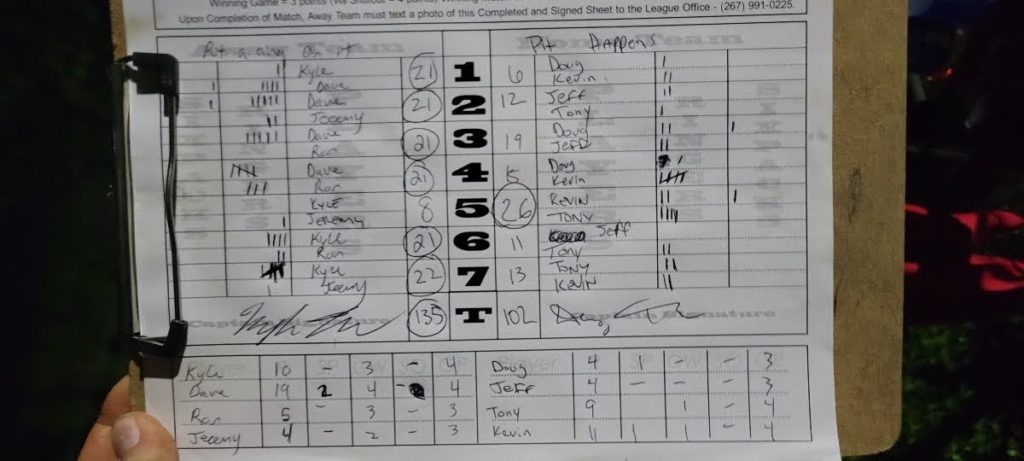 Winning Game = 3 points
Upon Completion of Match, Away Team must text a photo of this Completed and Signed Sheet to the League Office - (267) 991-0225.
Pit Happens
Kyle 21 1 6 Doug
Dave Kevin
Dave 21 2 12 Jeff
Jeremy Tony
Dave 21 3 19 Doug
Ron Jeff
Dave 21 4 15 Doug
Ron Kevin
KYLE 8 5 26 KEVIN
Jeremy TONY
Kyle 21 6 11 Jeff
Ron Tony
Kyle 22 7 13 TONY
Jeremy KEVIN
135 T 102
Captain Signature
Player
Kyle 10 - 3 - 4 Doug 4 1 - - 3
Dave 19 2 4 - 4 Jeff 4 - - - 3
Ron 5 - 3 - 3 Tony 9 1 - 4
Jeremy 4 - 2 - 3 Kevin 11 1 1 - 4